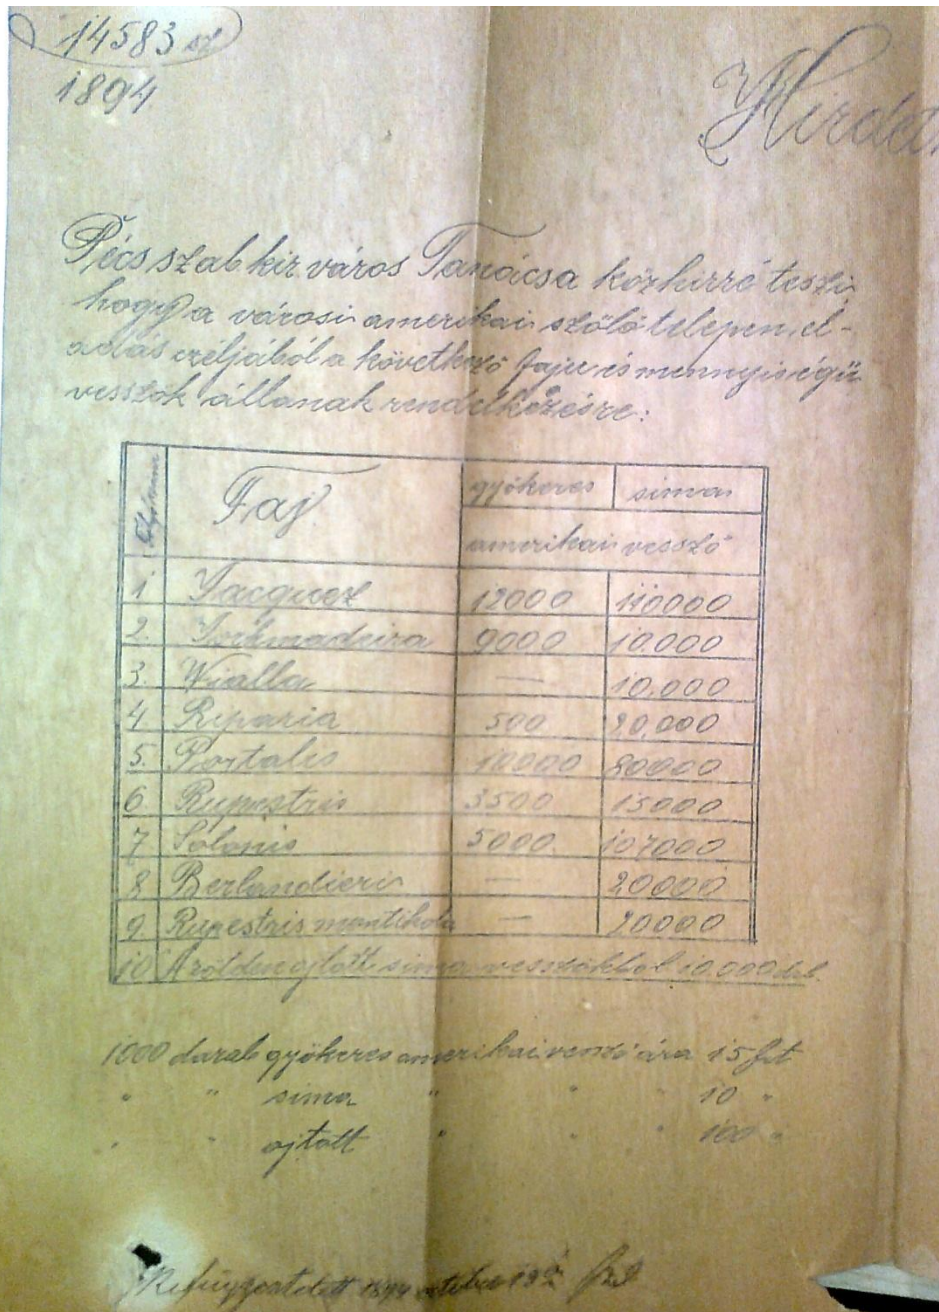 14583 sz
1894
Hirdet
Pécs szab kir. város Tanácsa közhirré teszi,
hogy a városi amerikai szőlőtelepen, el-
adás czéljából a következő faju és mennyiségű
vesszők állanak rendelkezésre:
Faj gyökeres sima
amerikai vessző
1 Jacquez 12000 110000
2. Yorkmadeira 9000 10.000
3. Wialla — 10.000
4 Riparia 500 20,000
5. Portalis 10000 80000
6 Rupestris 3500 15000
7 Solonis 5000 107000
8 Berlandieri — 20000
9. Rupestris montikola — 20000
10 A zölden ojtott sima vesszőkből 10.000 drb.
1000 darab gyökeres amerikai vessző ára 15 frt
" " sima " " " 10 "
" " ojtott " " " 100 "
1894